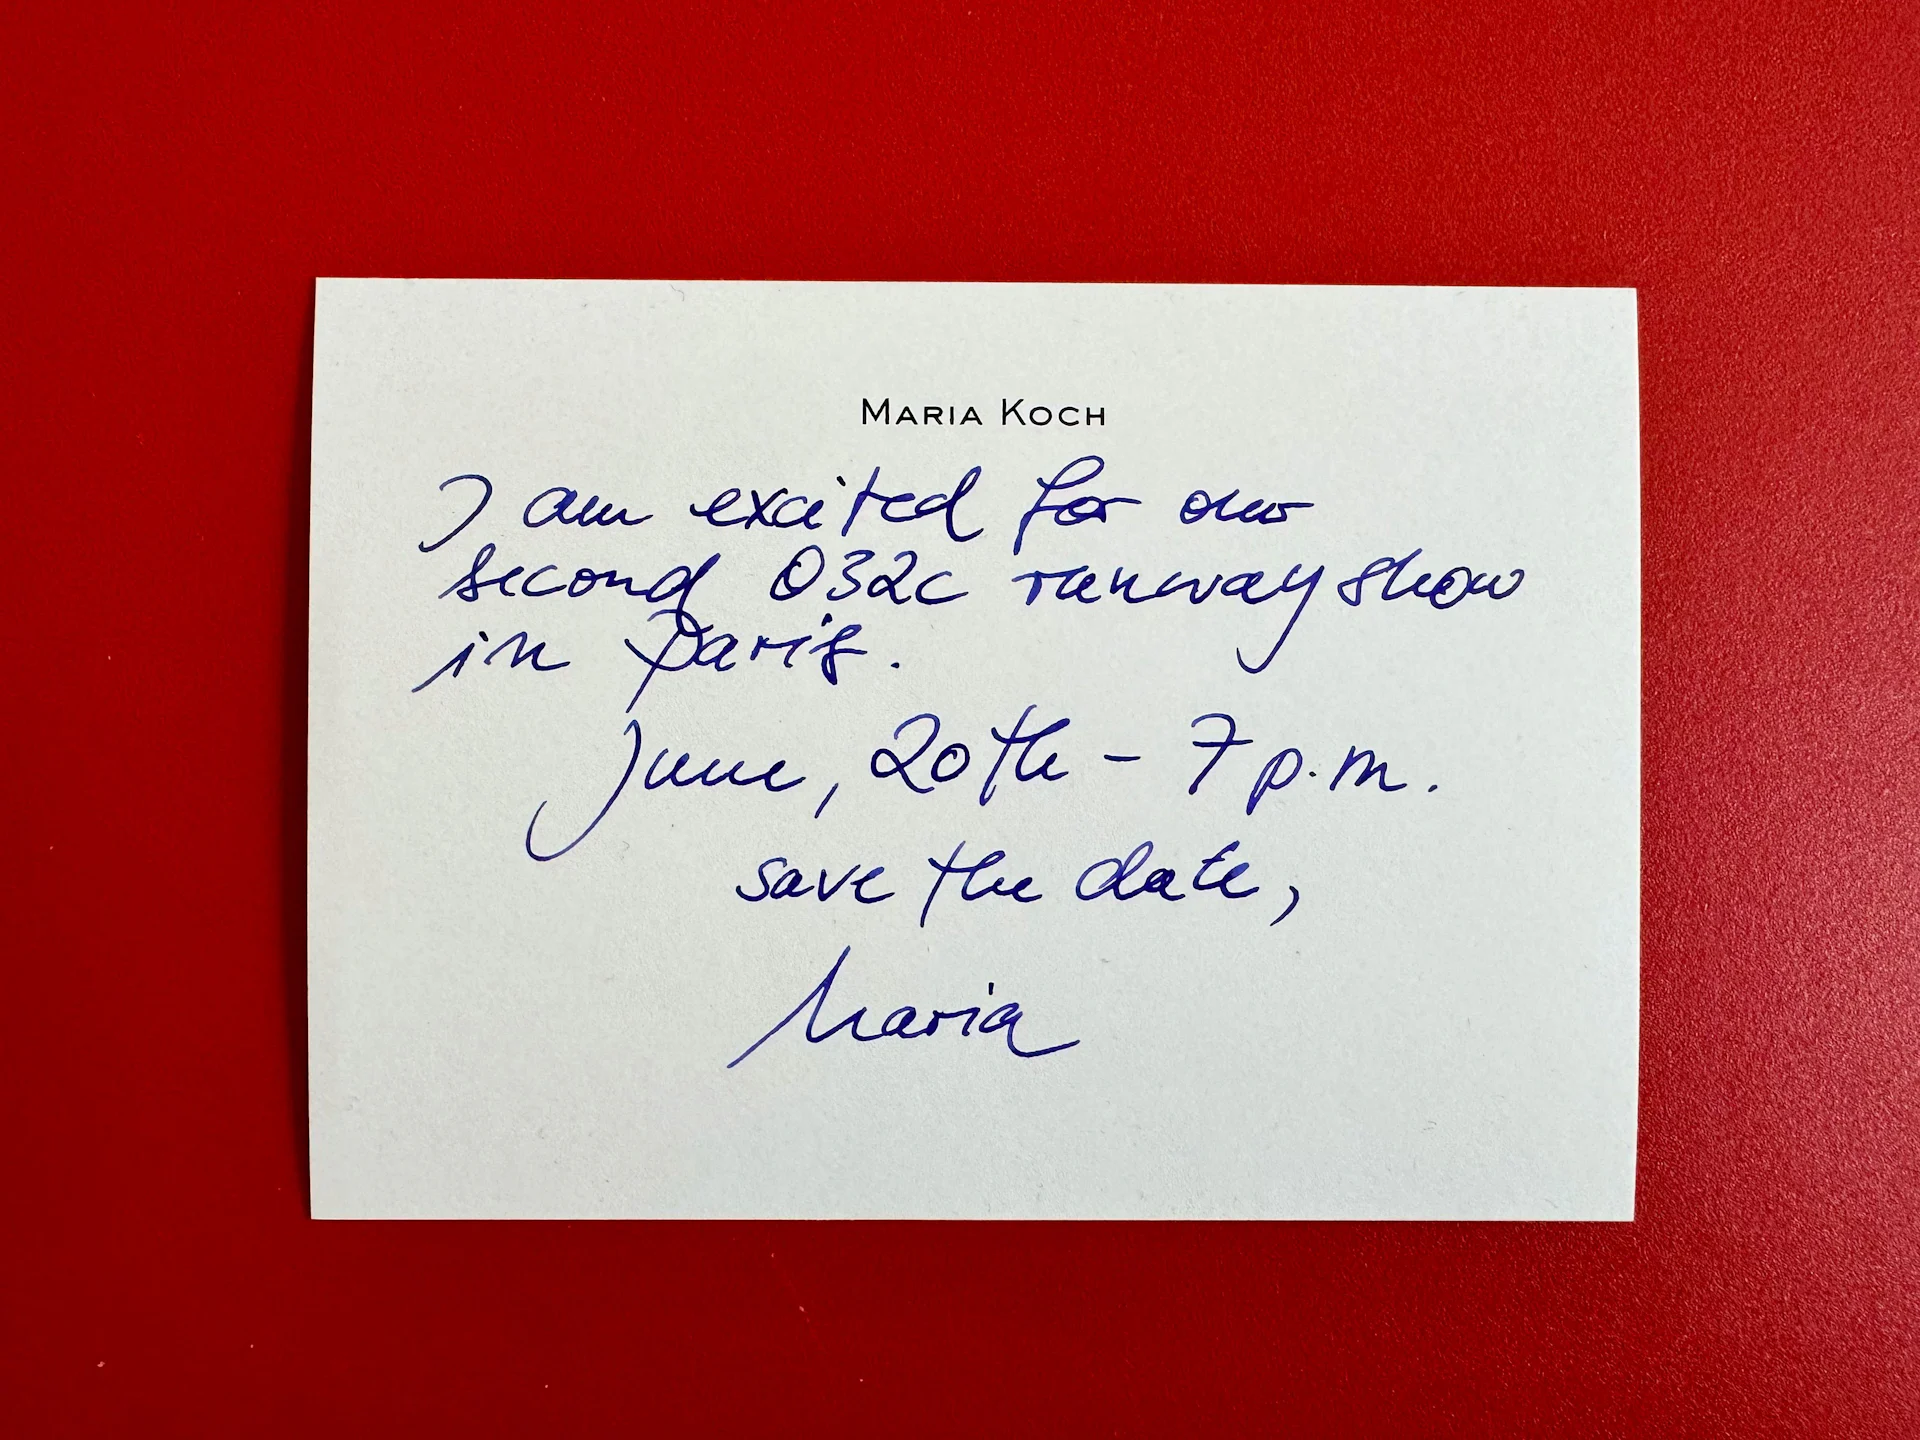 MARIA KOCH
I am excited for our
second 032c runway show
in Paris.
June, 20th - 7 p.m.
save the date,
Maria